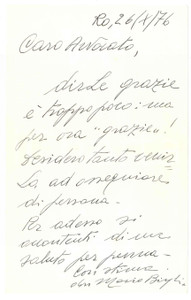 Ro, 26/X/76
Caro Avvocato,
dirLe grazie
è troppo poco: ma
per ora "grazie"!
Desidero tanto venir
La ad ossequiare
di persona.
Per adesso si
accontenti di un
saluto per penna.
Con stima